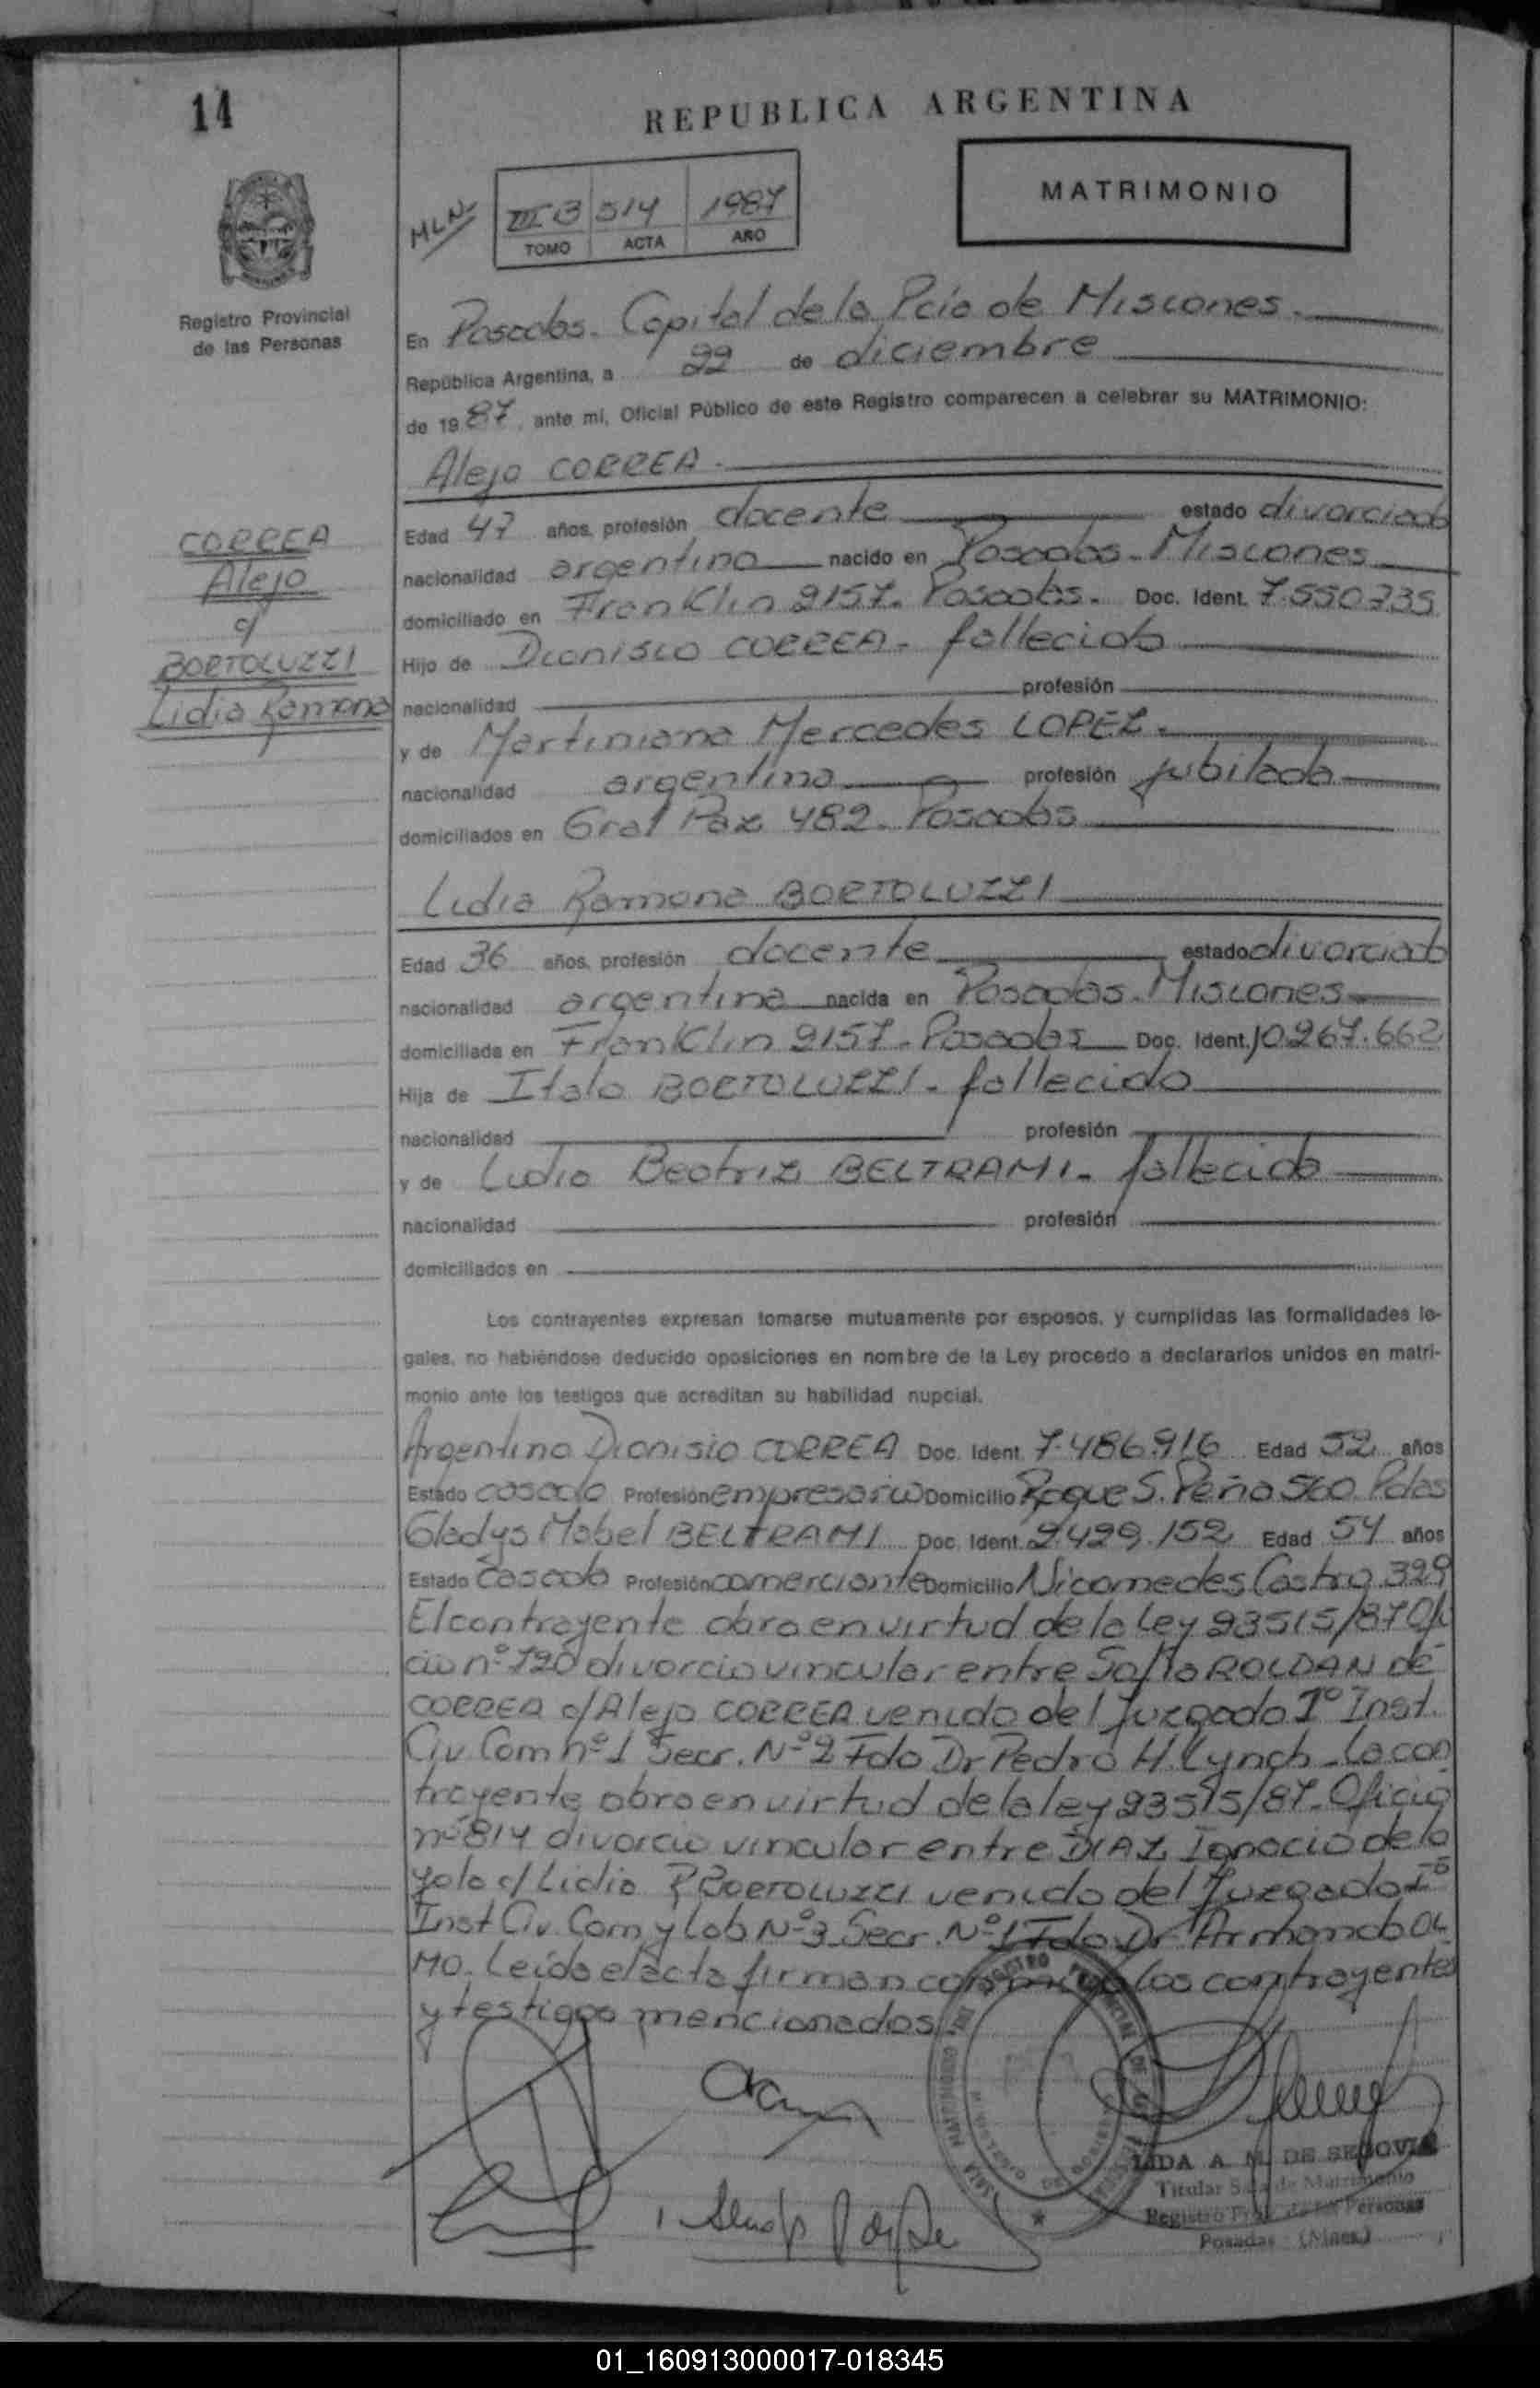 14
REPUBLICA ARGENTINA
MATRIMONIO
MLN
III B 514 1987
TOMO ACTA AÑO
Registro Provincial
de las Personas
En Posadas. Capital de la Pcia de Misiones.
República Argentina, a 22 de diciembre
de 1987, ante mí, Oficial Público de este Registro comparecen a celebrar su MATRIMONIO:
Alejo CORREA.
CORREA
Alejo
c/
BORTOLUZZI
Lidia Ramona
Edad 47 años, profesión docente estado divorciado
nacionalidad argentina nacido en Posadas. Misiones
domiciliado en Franklin 2157. Posadas. Doc. Ident. 7.550.735
Hijo de Dionisio CORREA. fallecido
nacionalidad profesión
y de Martiniana Mercedes LOPEZ.
nacionalidad argentina profesión jubilada
domiciliados en Gral Paz 482. Posadas
Lidia Ramona BORTOLUZZI
Edad 36 años, profesión docente estado divorciada
nacionalidad argentina nacida en Posadas. Misiones
domiciliada en Franklin 2157. Posadas Doc. Ident. 10.267.662
Hija de Italo BORTOLUZZI. fallecido
nacionalidad profesión
y de Lidia Beatriz BELTRAMI. fallecida
nacionalidad profesión
domiciliados en
Los contrayentes expresan tomarse mutuamente por esposos, y cumplidas las formalidades le-
gales, no habiéndose deducido oposiciones en nombre de la Ley procedo a declararlos unidos en matri-
monio ante los testigos que acreditan su habilidad nupcial.
Argentino Dionisio CORREA Doc. Ident. 7.486.916 Edad 52 años
Estado casado Profesión empresario Domicilio Roque S. Peña 560 Pdas
Gladys Mabel BELTRAMI Doc. Ident. 2.429.152 Edad 54 años
Estado casada Profesión comerciante Domicilio Nicomedes Castro 329
El contrayente obra en virtud de la ley 23515/87 Ofi
cio nº 720 divorcio vincular entre ROLDAN de
CORREA c/ Alejo CORREA venido del Juzgado 1º Inst.
Civ Com nº 1 Secr. Nº 2 Fdo Dr Pedro H. Lynch. La con
trayente obra en virtud de la ley 23515/87. Oficio
nº 814 divorcio vincular entre DIAZ Ignacio de lo
yola c/ Lidia R Bortoluzzi venido del Juzgado 1º
Inst Civ. Com y Lab Nº 3 Secr. Nº 1 Fdo Dr Armando OL
MO. Leída el acta firman conmigo los contrayentes
y testigos mencionados.
LIDA A. M. DE SEGOVIA
Titular Sala de Matrimonio
Registro Prov. de las Personas
Posadas (Mnes.)
01_160913000017-018345